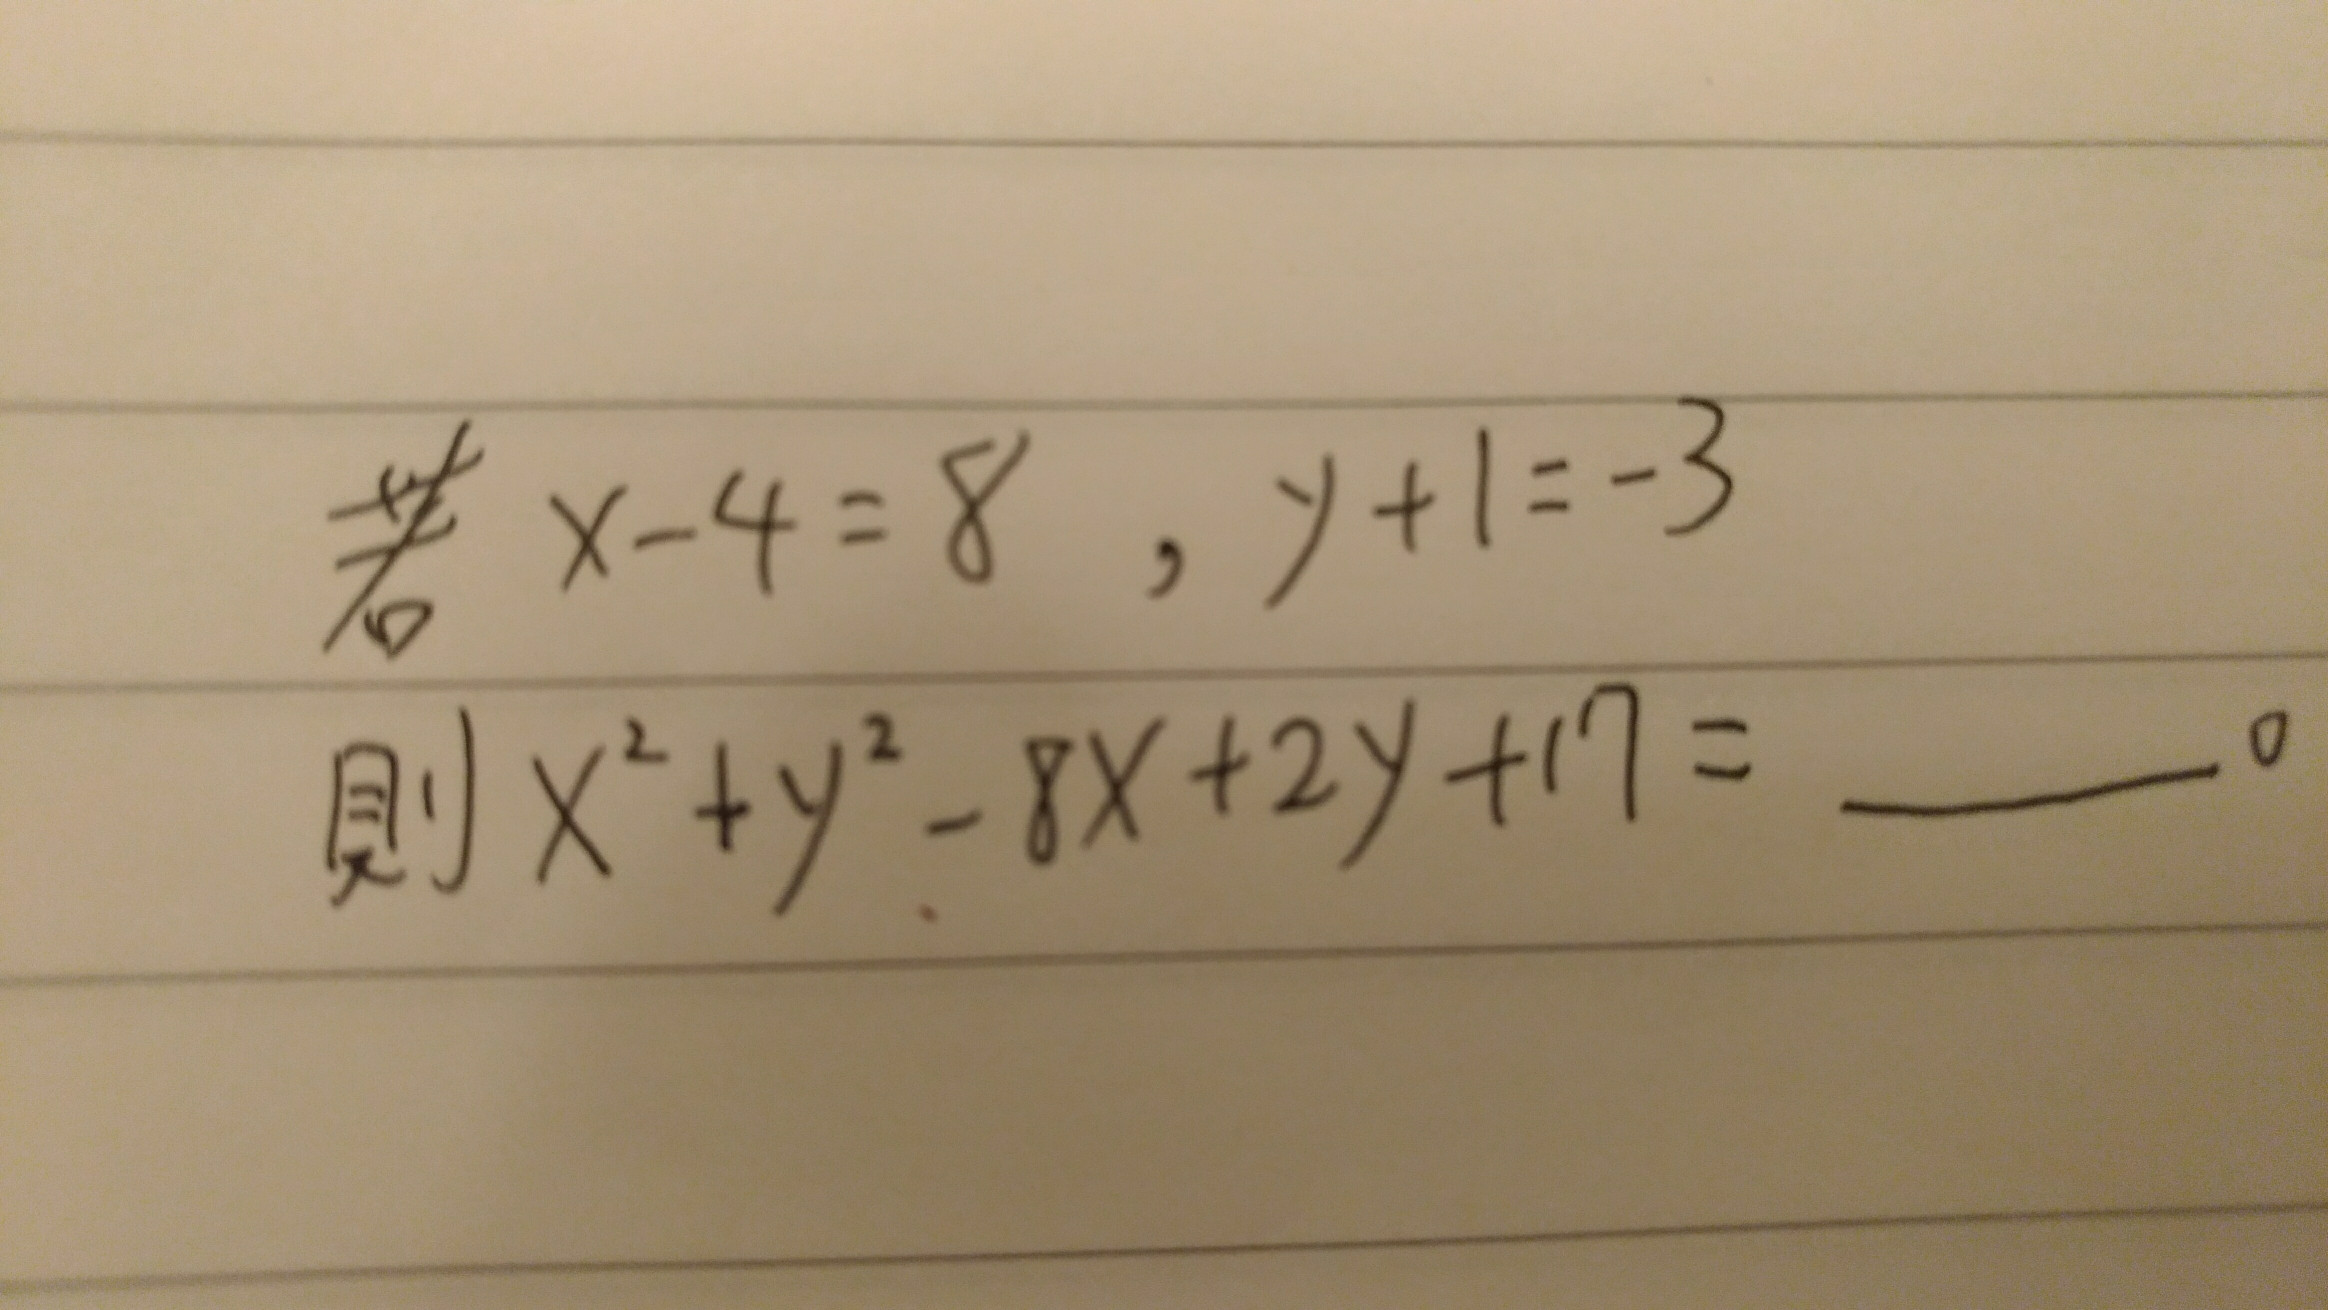 若 x-4=8 , y+1=-3
則 x²+y²-8x+2y+17= ____。